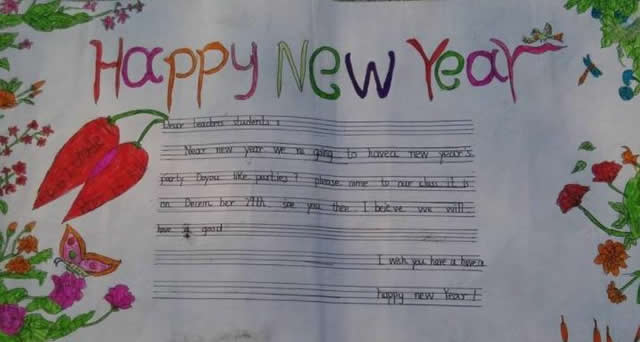 Happy New Year
Dear teachers students :
Near new year we re going to havea new year's
party Doyou like parties? please come to our class it is
on Decem ber 29th see you thee. I beieve we will
have a good
I wish you have a
happy new Year !